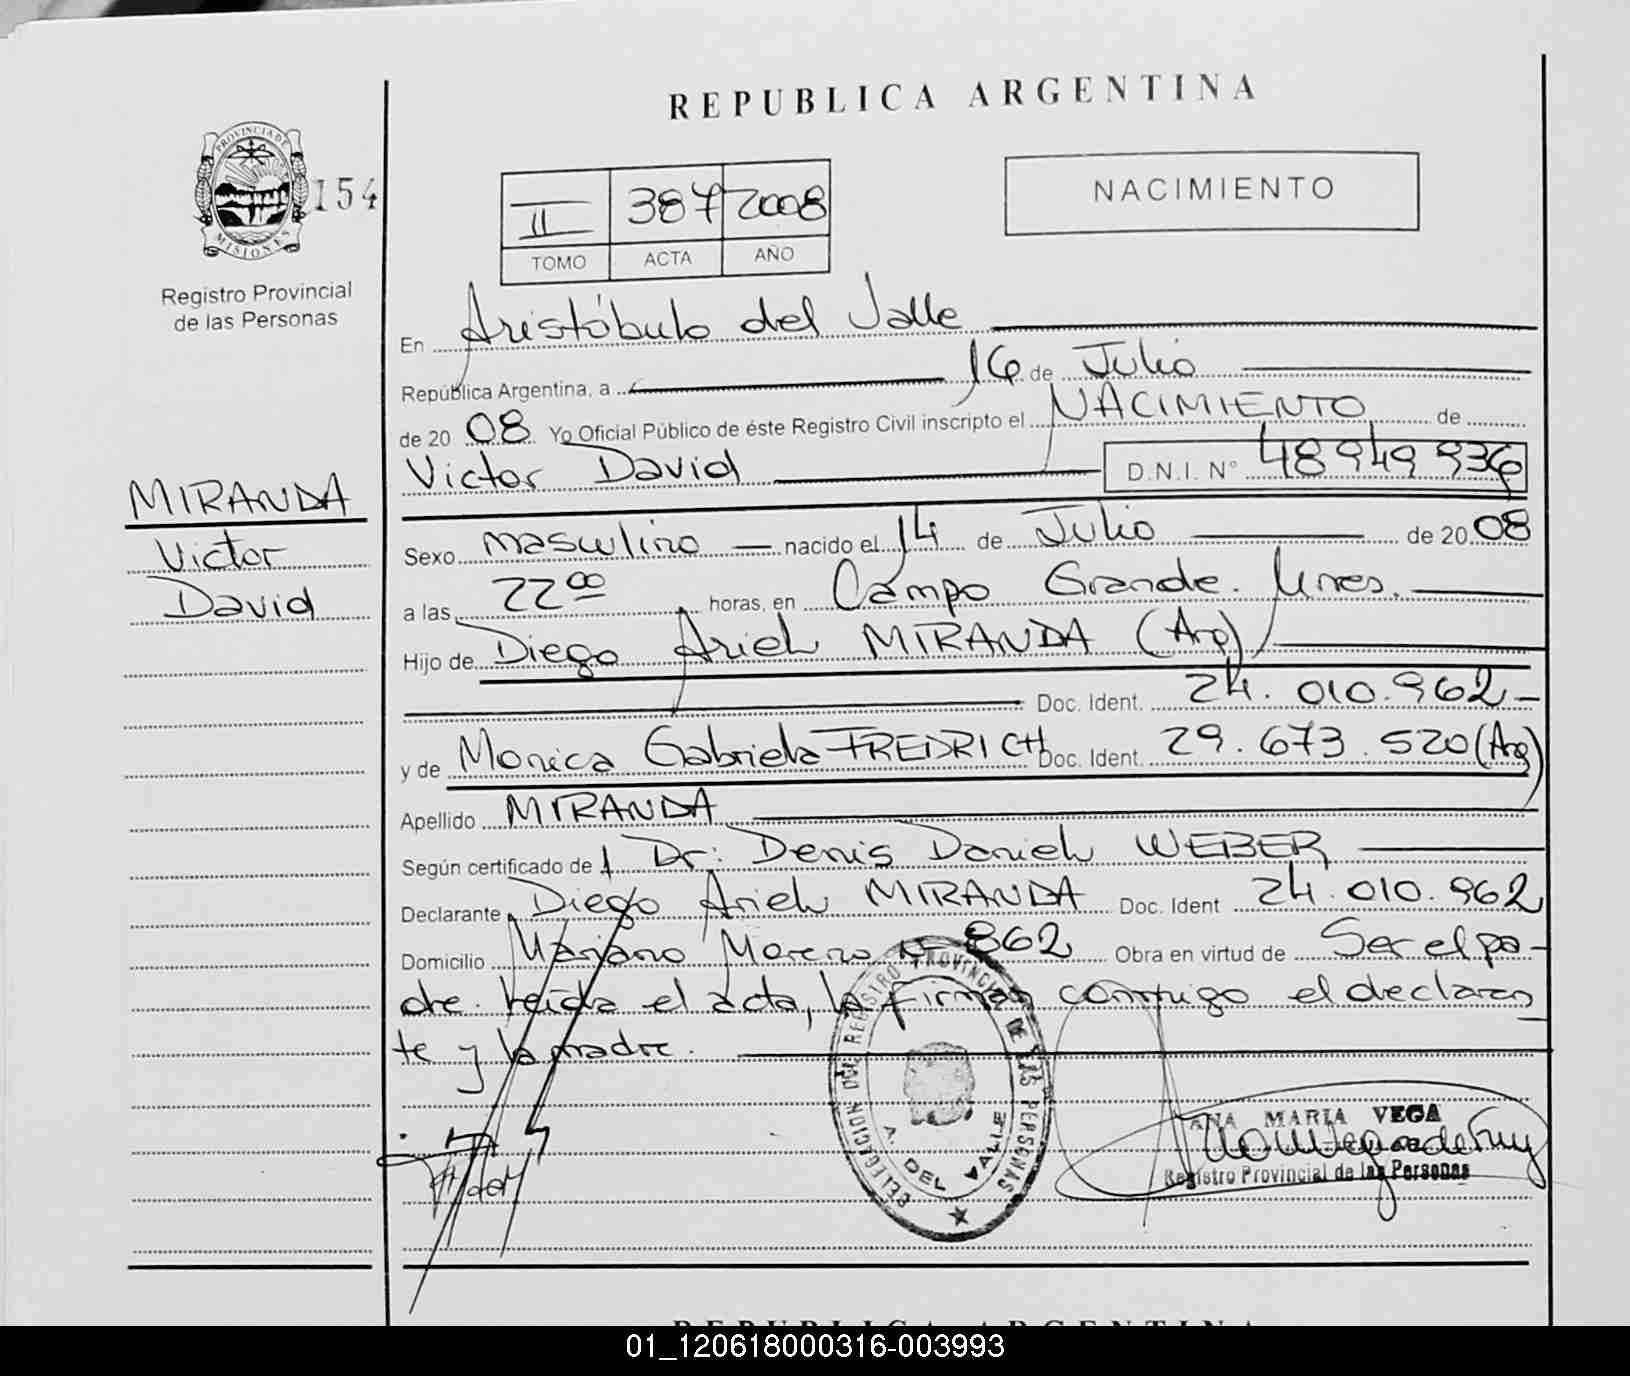 REPUBLICA ARGENTINA
PROVINCIA DE
MISIONES
154
Registro Provincial
de las Personas
II 387 2008
TOMO ACTA AÑO
NACIMIENTO
En Aristóbulo del Valle
República Argentina, a 16 de Julio
de 2008 Yo Oficial Público de éste Registro Civil inscripto el NACIMIENTO de
Victor David D.N.I. N° 48949936
MIRANDA
Victor
David
Sexo masculino nacido el 14 de Julio de 2008
a las 22 00 horas, en Campo Grande. Mnes.
Hijo de Diego Ariel MIRANDA (Arg)
Doc. Ident. 24.010.962
y de Monica Gabriela FREDRICH Doc. Ident. 29.673.520 (Arg)
Apellido MIRANDA
Según certificado de Dr: Denis Daniel WEBER
Declarante Diego Ariel MIRANDA Doc. Ident 24.010.962
Domicilio Mariano Moreno N° 862 Obra en virtud de Ser el pa-
dre. Leída el acta, la firman conmigo el declaran
te y la madre.
DELEGACION DEL REGISTRO PROVINCIAL DE LAS PERSONAS
A. DEL VALLE
ANA MARIA VEGA
Registro Provincial de las Personas
REPUBLICA ARGENTINA
01_120618000316-003993